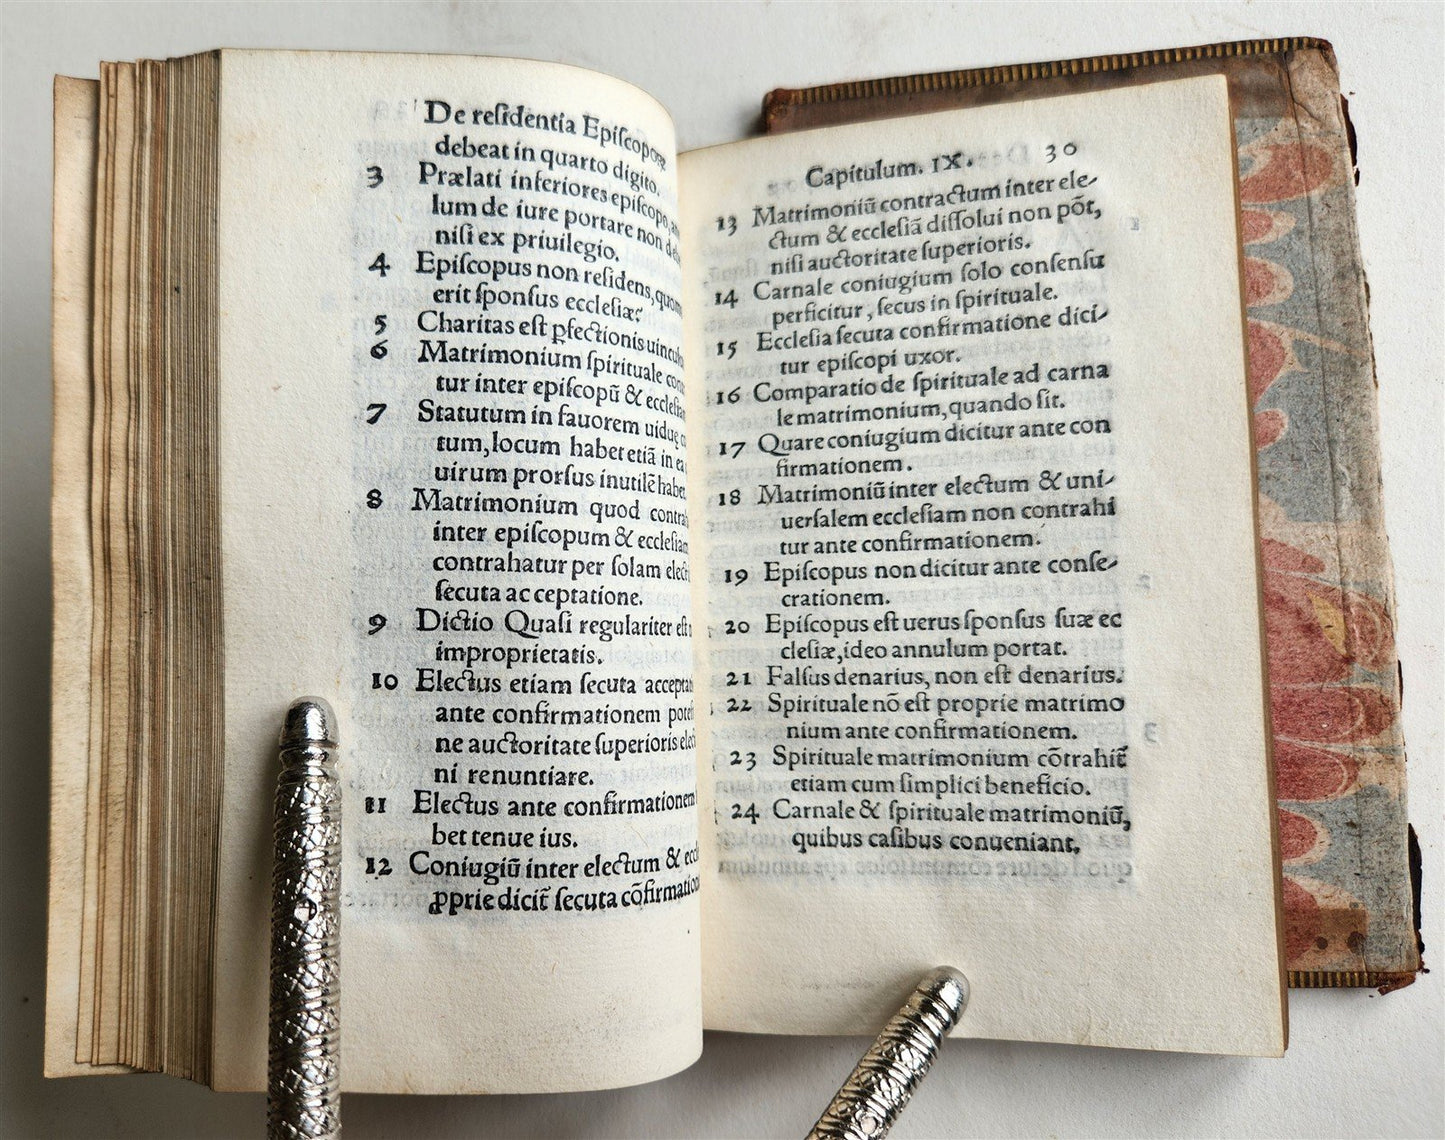 De reſidentia Epiſcoporꝝ
debeat in quarto digito.
3 Prælati inferiores epiſcopo,
lum de iure portare non
niſi ex priuilegio.
4 Epiſcopus non reſidens,
erit ſponſus eccleſiæ:
5 Charitas eſt ꝑfectionis
6 Matrimonium ſpirituale
tur inter epiſcopū & eccleſiam
7 Statutum in fauorem uiduę
tum, locum habet etiā in ea
uirum prorſus inutilē habet
8 Matrimonium quod
inter epiſcopum & eccleſiam
contrahatur per ſolam
ſecuta acceptatione.
9 Dictio Quaſi regulariter eſt
improprietatis.
10 Electus etiam ſecuta
ante confirmationem
ne auctoritate ſuperioris
ni renuntiare.
11 Electus ante confirmationem
bet tenue ius.
12 Coniugiū inter electum &
ꝓprie dicit̄ ſecuta cōfirmatione
Capitulum. IX. 30
13 Matrimoniū contractum inter ele-
ctum & eccleſiā diſſolui non põt,
niſi auctoritate ſuperioris.
14 Carnale coniugium ſolo conſenſu
perficitur, ſecus in ſpirituale.
15 Eccleſia ſecuta confirmatione dici-
tur epiſcopi uxor.
16 Comparatio de ſpirituale ad carna
le matrimonium, quando ſit.
17 Quare coniugium dicitur ante con
firmationem.
18 Matrimoniū inter electum & uni-
uerſalem eccleſiam non contrahi
tur ante confirmationem.
19 Epiſcopus non dicitur ante conſe-
crationem.
20 Epiſcopus eſt uerus ſponſus ſuæ ec
cleſiæ, ideo annulum portat.
21 Falſus denarius, non eſt denarius.
22 Spirituale nō eſt proprie matrimo
nium ante confirmationem.
23 Spirituale matrimonium cōtrahit̄
etiam cum ſimplici beneficio.
24 Carnale & ſpirituale matrimoniū,
quibus caſibus conueniant.